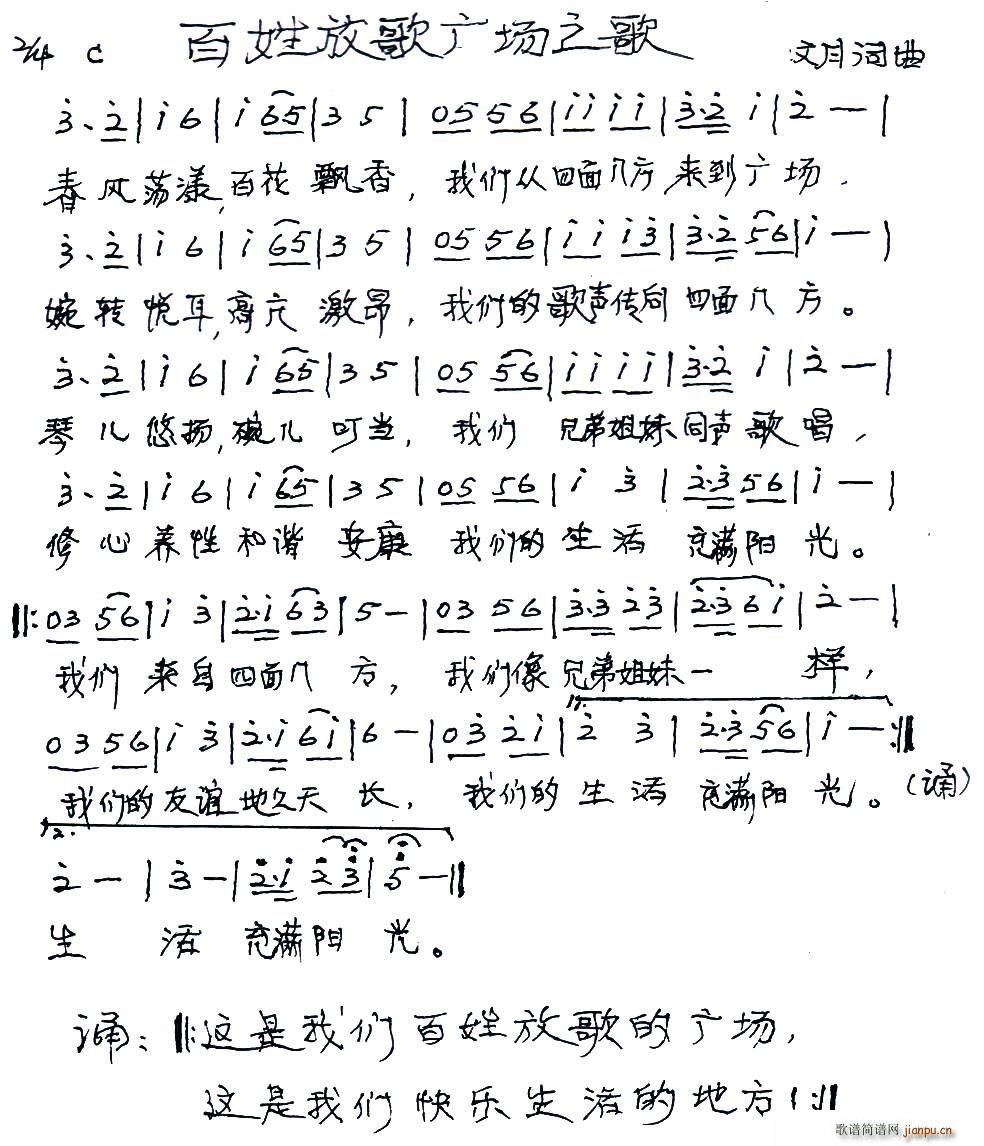 2/4 C 百姓放歌广场之歌 文月词曲
3̇. 2̇ | i 6 | i 65 | 3 5 | 05 56 | i i i i | 3̇·2̇ i | 2̇ — |
春风荡漾,百花飘香,我们从四面八方来到广场,
3̇. 2̇ | i 6 | i 65 | 3 5 | 05 56 | i i i 3̇ | 3̇·2̇ 56 | i — |
婉转悦耳,高亢激昂,我们的歌声传向四面八方。
3̇. 2̇ | i 6 | i 65 | 3 5 | 05 56 | i i i i | 3̇·2̇ i | 2̇ — |
琴儿悠扬,碗儿叮当,我们兄弟姐妹同声歌唱,
3̇. 2̇ | i 6 | i 65 | 3 5 | 05 56 | i 3̇ | 2̇·3̇ 56 | i — |
修心养性和谐安康 我们的生活充满阳光。
‖: 03 56 | i 3̇ | 2̇·i 63 | 5 — | 03 56 | 3̇·3̇ 2̇3̇ | 2̇·3̇ 6i | 2̇ — |
我们来自四面八方,我们像兄弟姐妹一样,
1.
03 56 | i 3̇ | 2̇·i 6i | 6 — | 03̇ 2̇i | 2̇ 3̇ | 2̇·3̇ 56 | i — :‖
我们的友谊地久天长,我们的生活充满阳光。(诵)
2.
2̇ — | 3̇ — | 2̇·i 2̇3̇ | 5̇ — ‖
生活充满阳光。
诵: ‖: 这是我们百姓放歌的广场,
这是我们快乐生活的地方 | :‖
歌谱简谱网 jianpu.cn